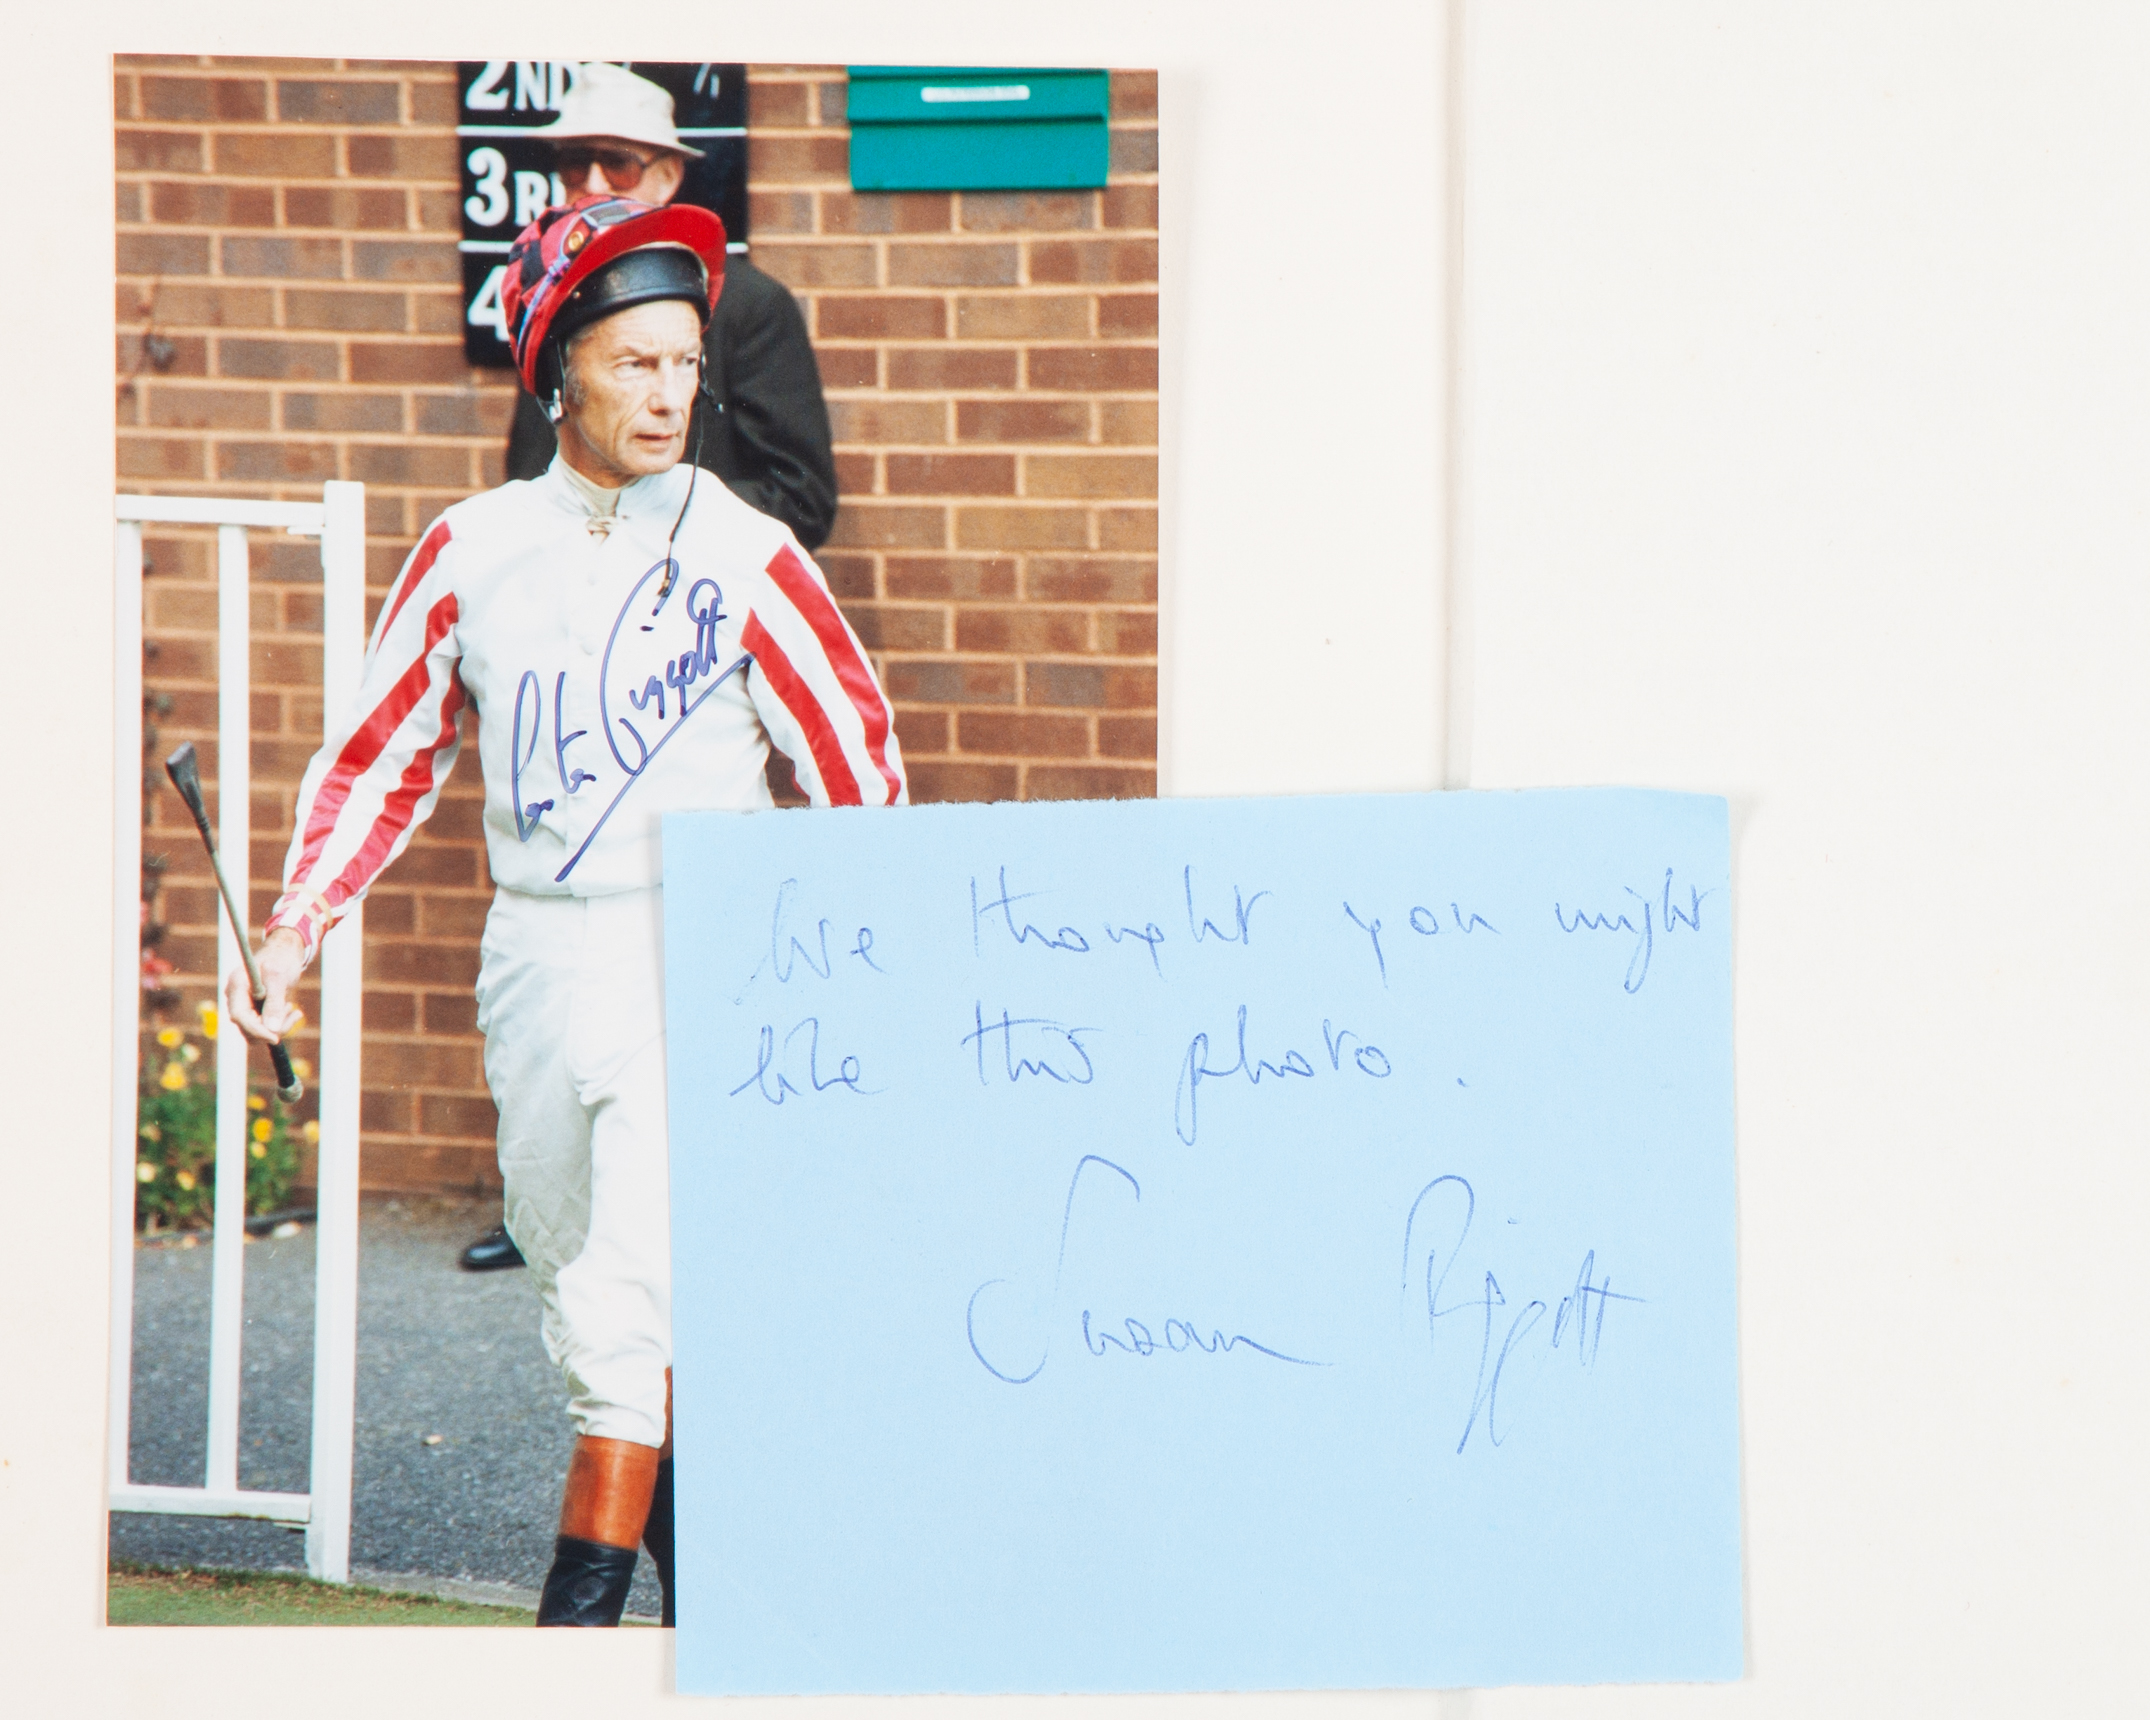 2ND
3R
4
Lester Piggott
We thought you might
like this photo.
Susan Piggott